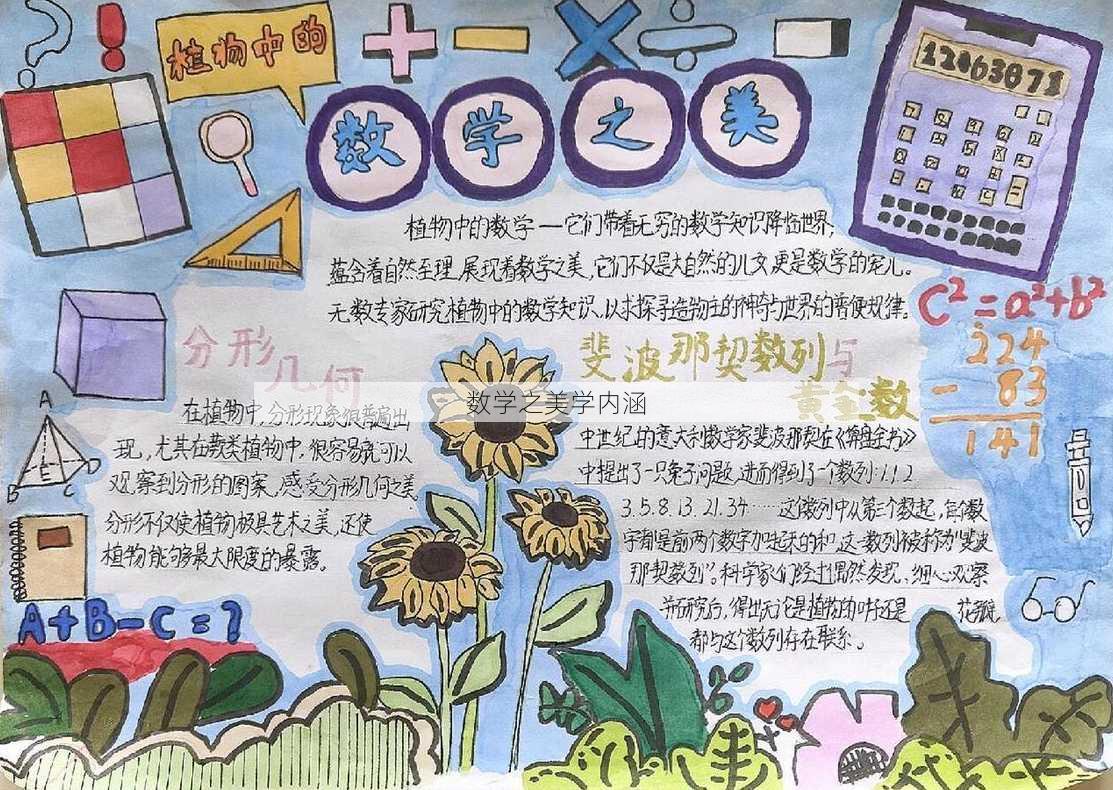 植物中的
数学之美
12463871
植物中的数学—它们带着无穷的数学知识降临世界;
蕴含着自然至理,展现着数学之美,它们不仅是大自然的儿女,更是数学的宠儿。
无数专家研究植物中的数学知识,以求探寻造物主的神奇与世界的普便规律。
C²=a²+b²
224
- 83
141
分形几何
在植物中,分形现象很普遍出
现,尤其在蕨类植物中,很容易就可以
观察到分形的图案,感受分形几何之美.
分形不仅使植物极具艺术之美,还使
植物能够最大限度的暴露。
斐波那契数列与
黄金数
数学之美学内涵
中世纪的意大利数学家斐波那契在《算盘全书》
中提出了一只兔子问题,进而得到了一个数列:1.1.2
3.5.8.13.21.34……这个数列中从第三个数起,每个数
字都是前两个数字加起来的和,这一数列被称为"斐波
那契数列"。科学家们经过偶然发现、细心观察
并研究后,得出无论是植物的叶还是花瓣,
都与这个数列存在联系。
A
B
C
D
E
A+B-C=?